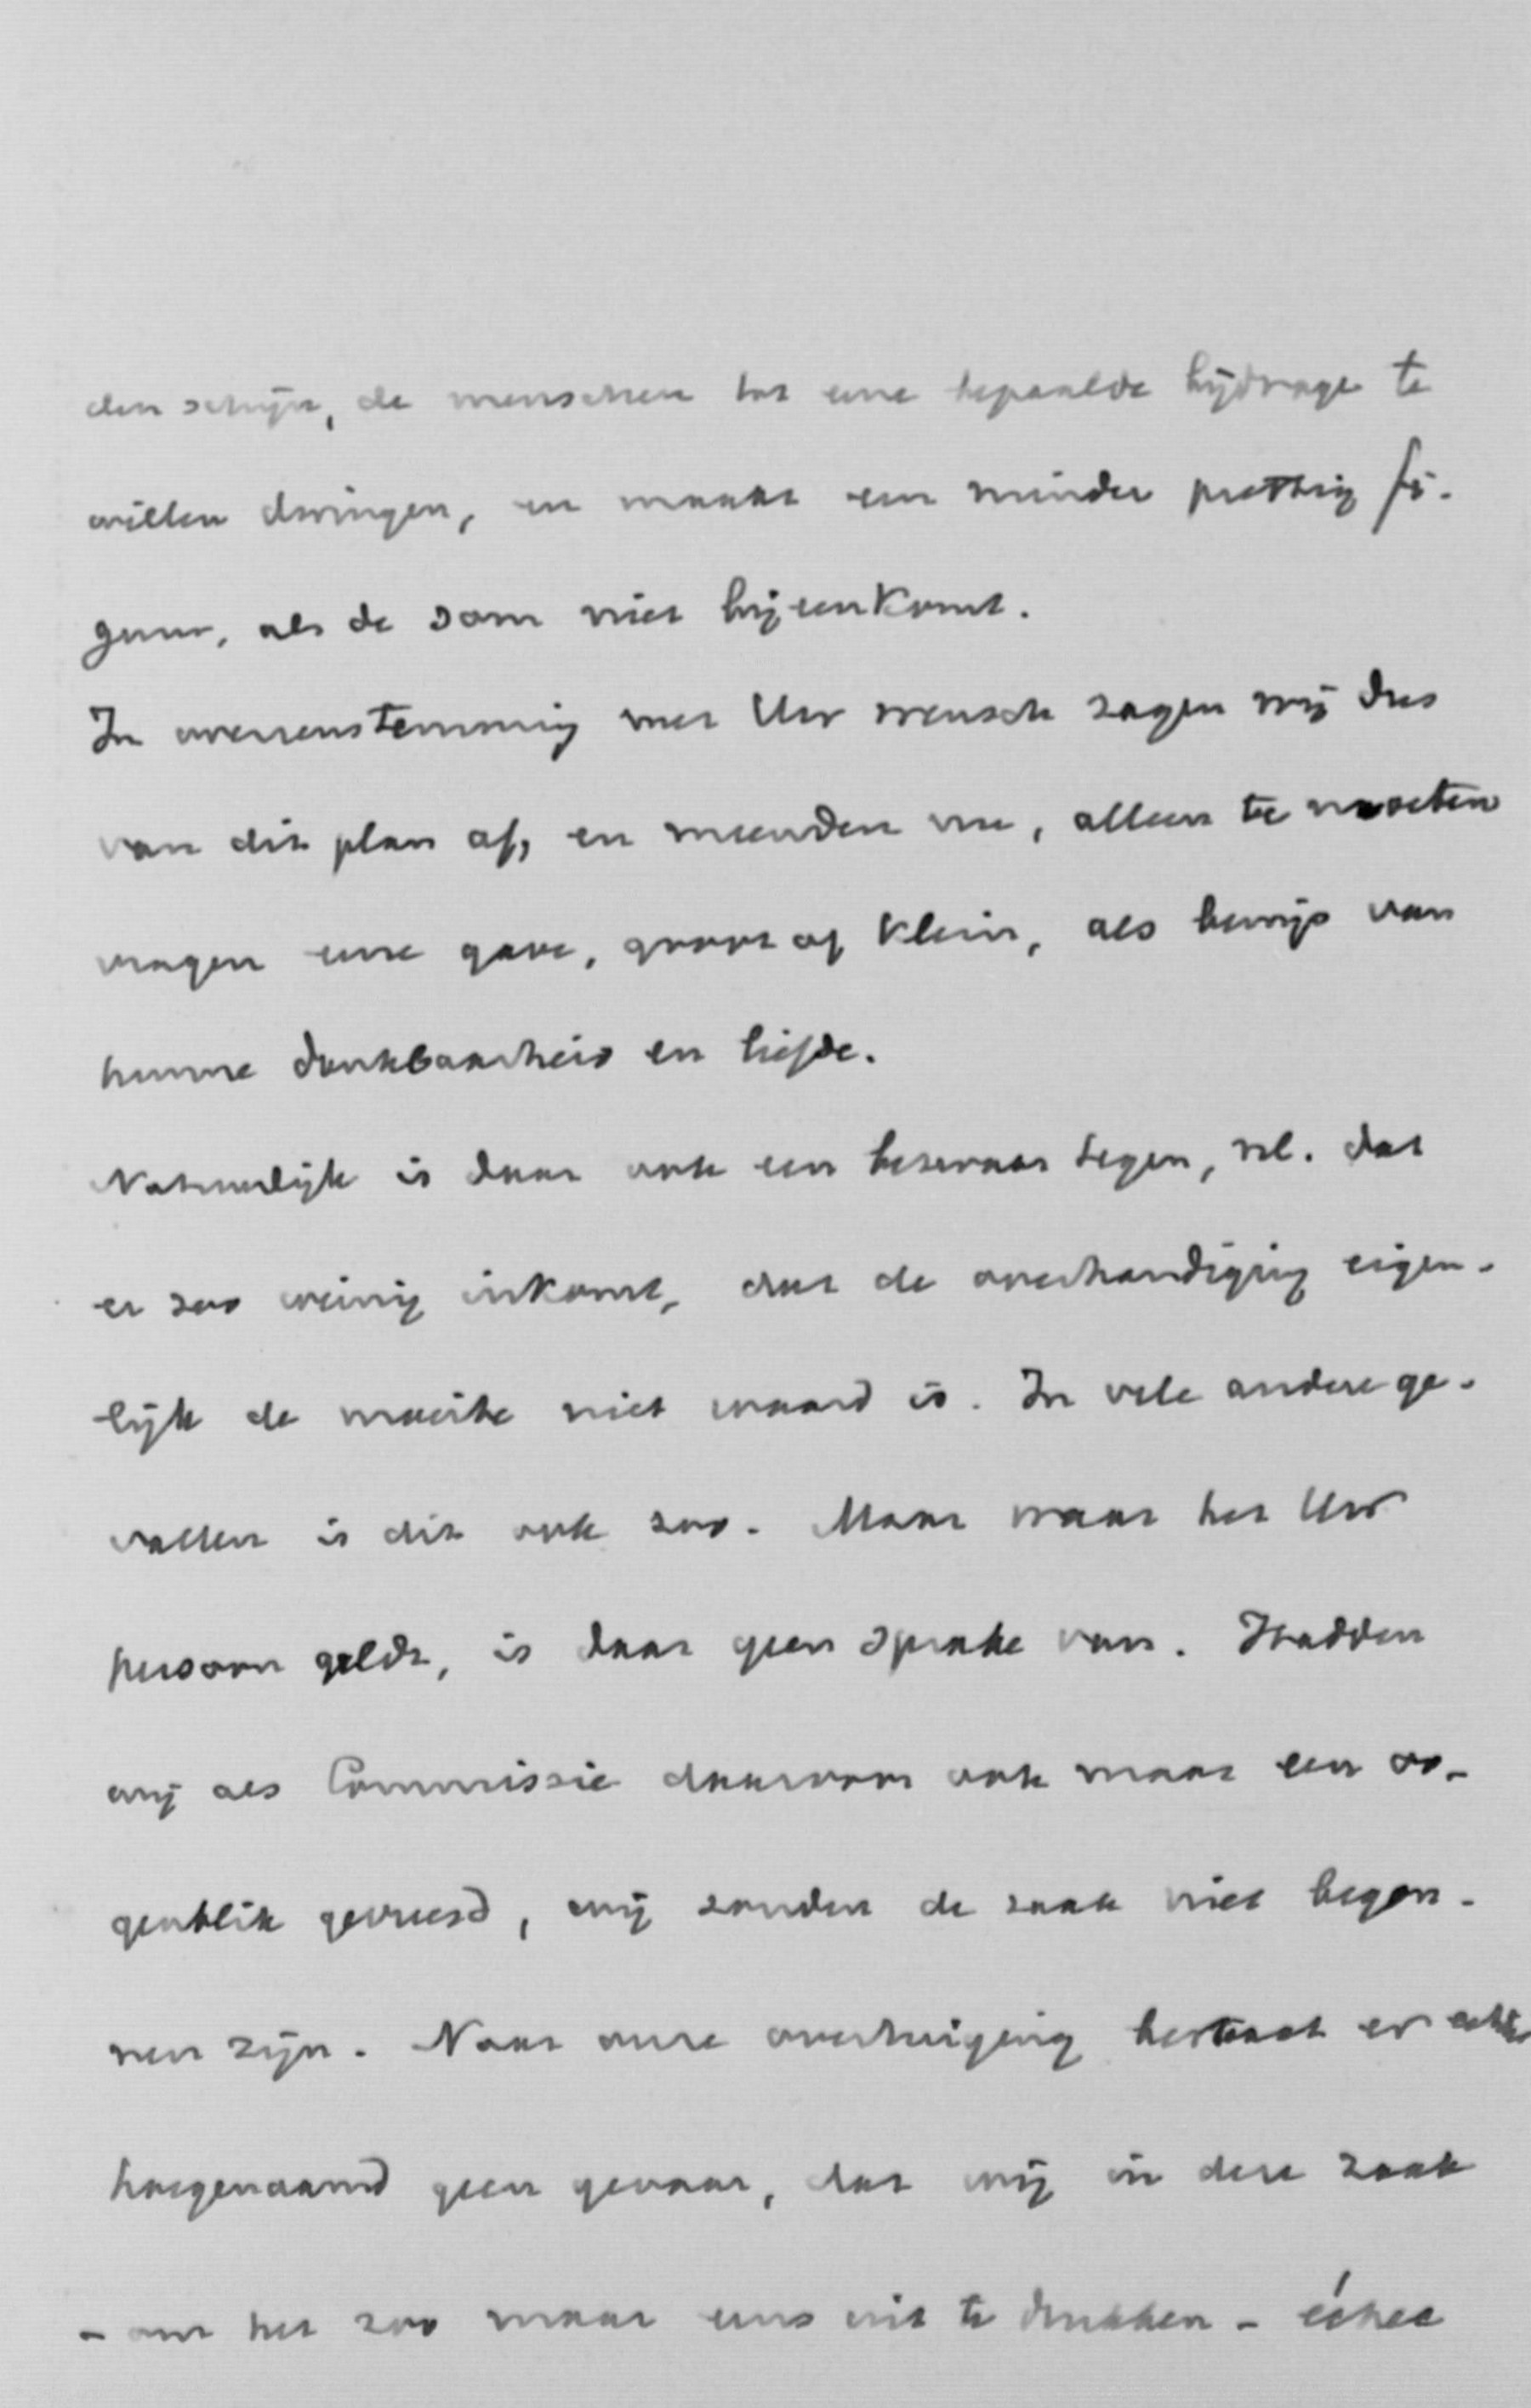 den schijn, de menschen tot eene bepaalde bijdrage te
willen dwingen, en maakt een minder prettig fi-
guur, als de som niet bijeenkomt.
In overeenstemming met Uw wensch zagen wij dus
van dit plan af, en meenden nu, alleen te moeten
vragen eene gave, groot of klein, als bewijs van
hunne dankbaarheid en liefde.
Natuurlijk is daar ook een bezwaar tegen, nl. dat
er zoo weinig inkomt, dat de overhandiging eigen-
lijk de moeite niet waard is. In vele andere ge-
vallen is dit ook zoo. Maar waar het Uw
persoon geldt, is daar geen sprake van. Hadden
wij als Commissie daarvoor ook maar een oo-
genblik gevreesd, wij zouden de zaak niet begon-
nen zijn. Naar onze overtuiging bestaat er echter
hoegenaamd geen gevaar, dat wij in deze zaak
- om het zoo maar eens uit te drukken - échec